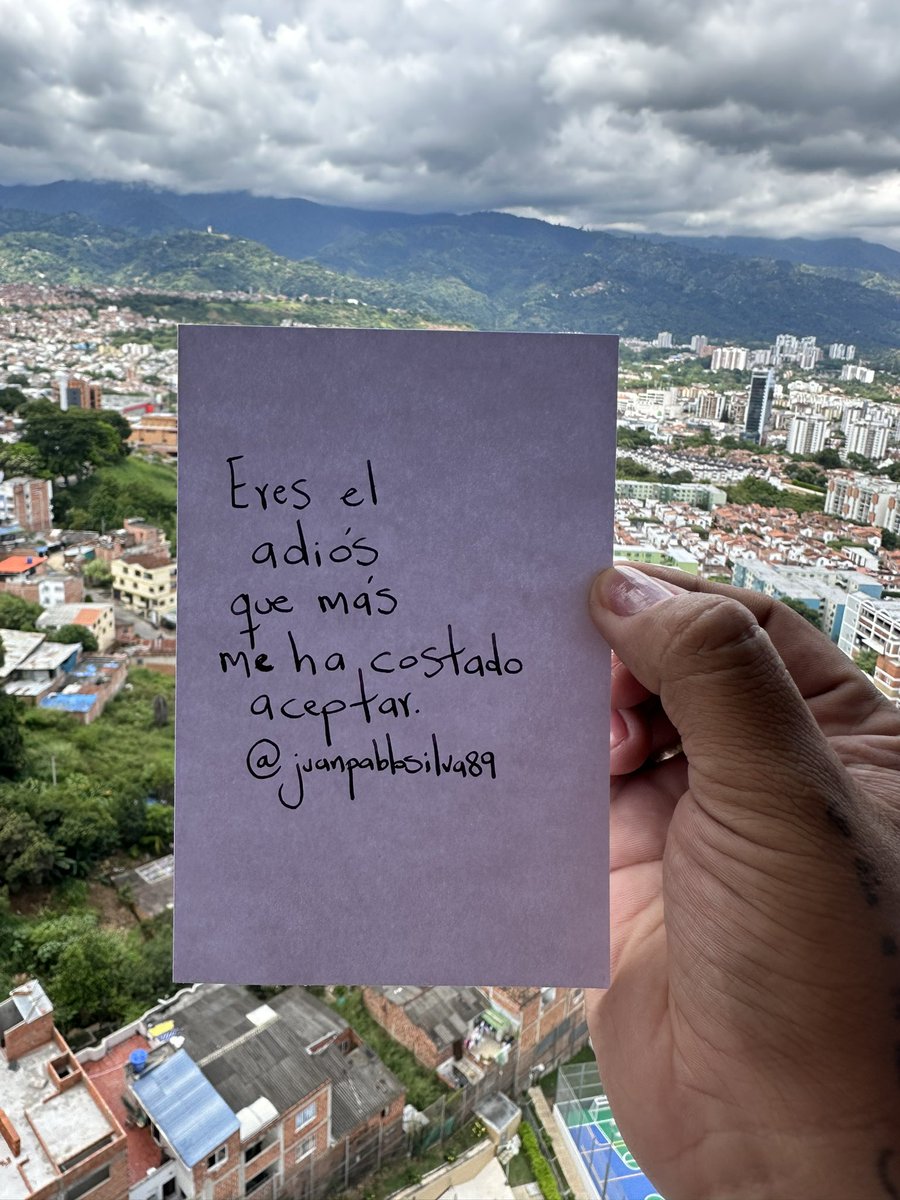 Eres el
adiós
que más
me ha costado
aceptar.
@juanpablosilva89